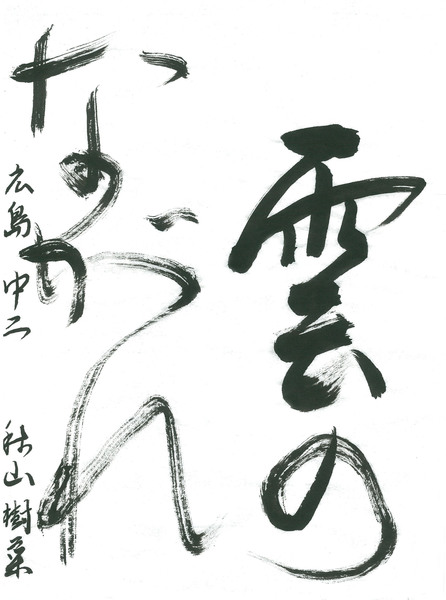 雲の
ながれ
広島 中二 秋山樹菜